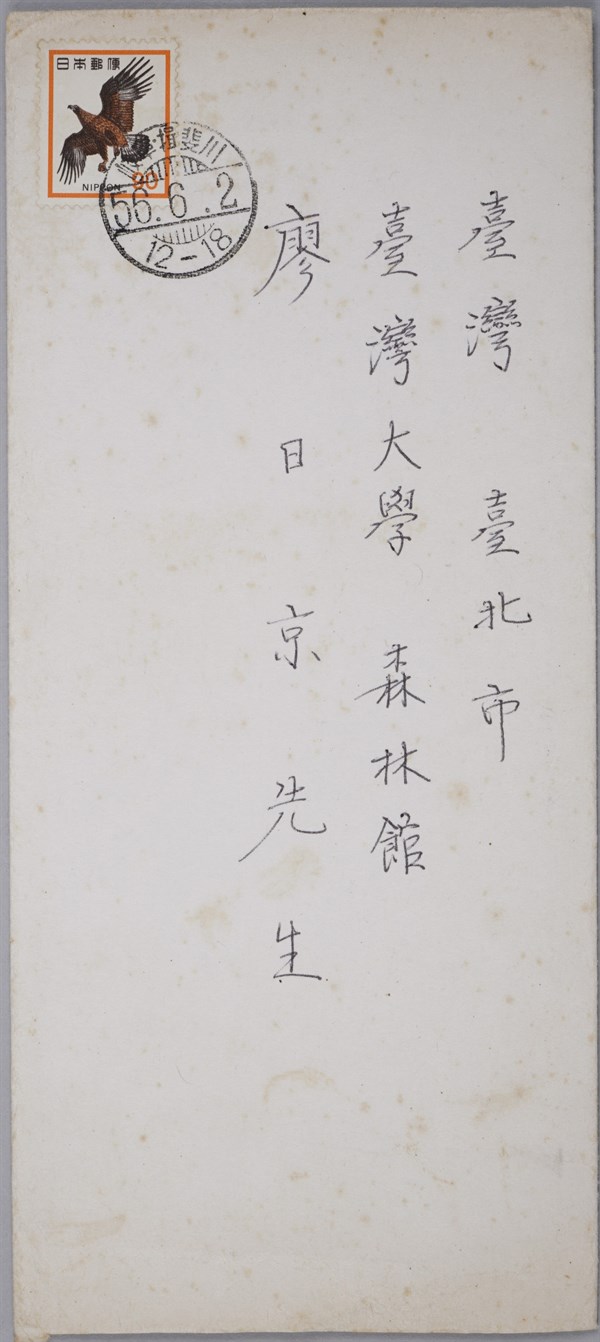 日本郵便
NIPPON 90
揖斐川
56.6.2
12-18
臺灣 臺北市
臺灣大學 森林館
廖日京先生